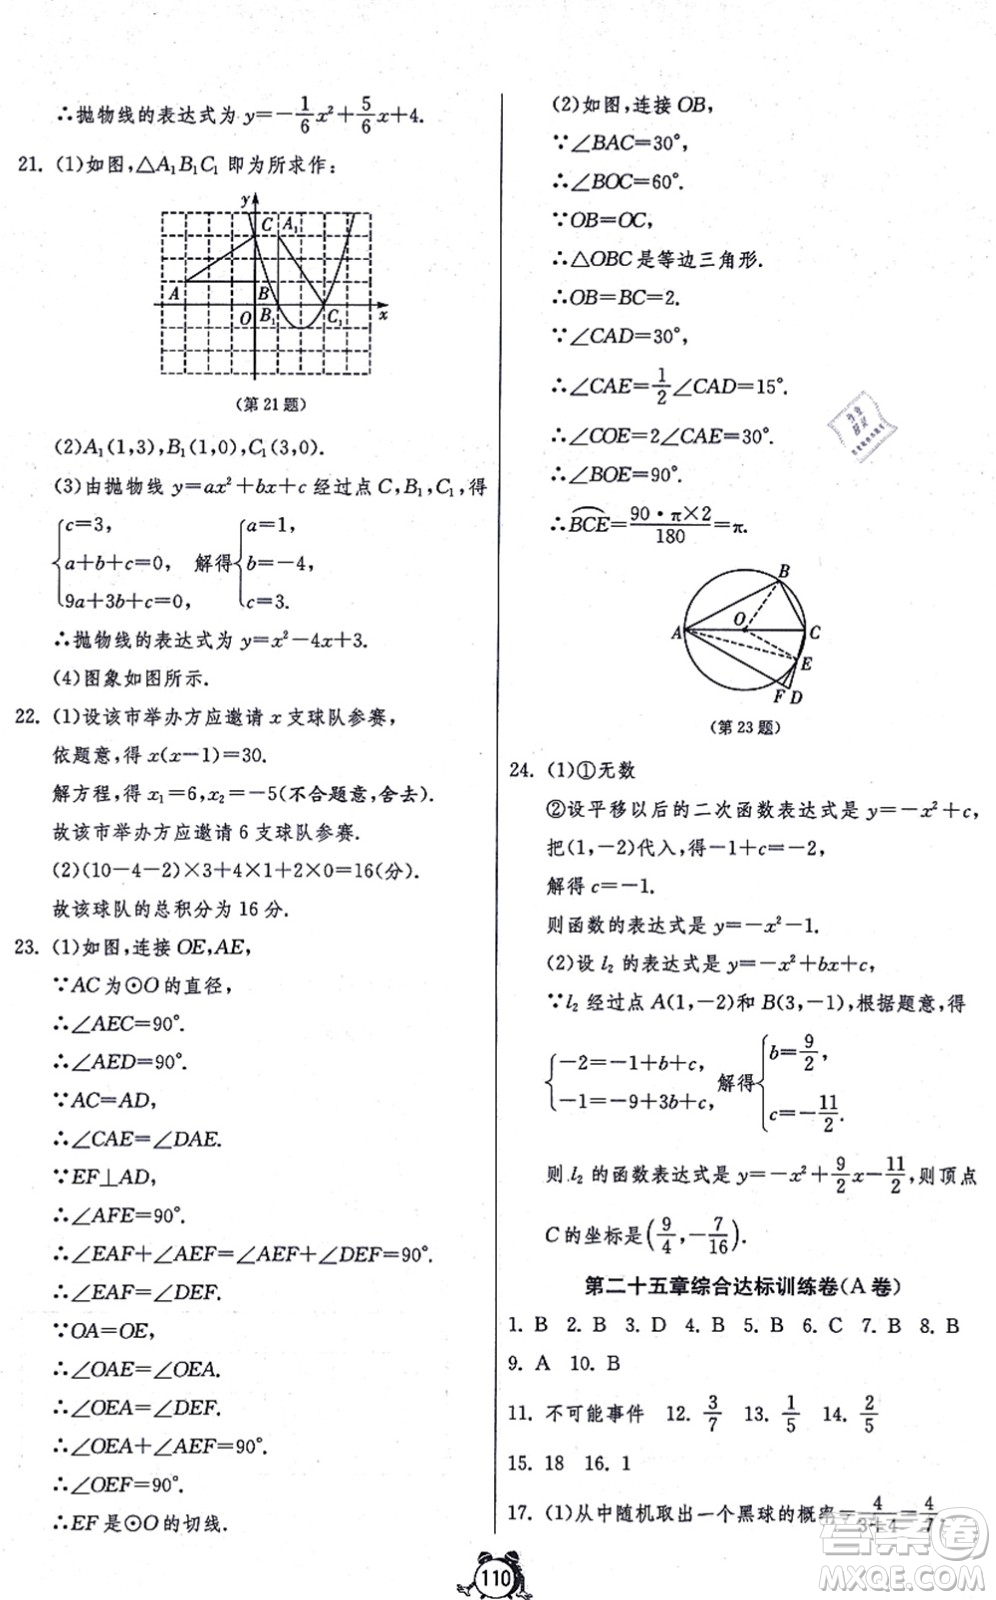 ∴抛物线的表达式为 y=-1/6x²+5/6x+4.
21. (1)如图,△A₁B₁C₁ 即为所求作:
y
C A₁
A B
O B₁ C₁ x
(第 21 题)
(2)A₁(1,3),B₁(1,0),C₁(3,0).
(3)由抛物线 y=ax²+bx+c 经过点 C,B₁,C₁,得
{c=3, a+b+c=0, 9a+3b+c=0, 解得{a=1, b=-4, c=3.
∴抛物线的表达式为 y=x²-4x+3.
(4)图象如图所示.
22. (1)设该市举办方应邀请 x 支球队参赛,
依题意,得 x(x-1)=30.
解方程,得 x₁=6,x₂=-5(不合题意,舍去).
故该市举办方应邀请 6 支球队参赛.
(2)(10-4-2)×3+4×1+2×0=16(分).
故该球队的总积分为 16 分.
23. (1)如图,连接 OE,AE,
∵AC 为⊙O 的直径,
∴∠AEC=90°.
∴∠AED=90°.
∵AC=AD,
∴∠CAE=∠DAE.
∵EF⊥AD,
∴∠AFE=90°.
∴∠EAF+∠AEF=∠AEF+∠DEF=90°.
∴∠EAF=∠DEF.
∵OA=OE,
∴∠OAE=∠OEA.
∴∠OEA=∠DEF.
∴∠OEA+∠AEF=90°.
∴∠OEF=90°.
∴EF 是⊙O 的切线.
(2)如图,连接 OB,
∵∠BAC=30°,
∴∠BOC=60°.
∵OB=OC,
∴△OBC 是等边三角形.
∴OB=BC=2.
∵∠CAD=30°,
∴∠CAE=1/2∠CAD=15°.
∴∠COE=2∠CAE=30°.
∴∠BOE=90°.
∴BCE=90·π×2/180=π.
B
A O C
E
F D
(第 23 题)
24. (1)①无数
②设平移以后的二次函数表达式是 y=-x²+c,
把(1,-2)代入,得-1+c=-2,
解得 c=-1.
则函数的表达式是 y=-x²-1.
(2)设 l₂ 的表达式是 y=-x²+bx+c,
∵l₂ 经过点 A(1,-2)和 B(3,-1),根据题意,得
{-2=-1+b+c, -1=-9+3b+c, 解得{b=9/2, c=-11/2.
则 l₂ 的函数表达式是 y=-x²+9/2x-11/2,则顶点
C 的坐标是(9/4,-7/16).
第二十五章综合达标训练卷(A 卷)
1. B 2. B 3. D 4. B 5. B 6. C 7. B 8. B
9. A 10. B
11. 不可能事件 12. 3/7 13. 1/5 14. 2/5
15. 18 16. 1
17. (1)从中随机取出一个黑球的概率=4/3+4=4/7.
110
答案卷
MXQE.COM